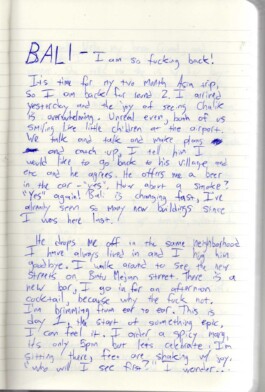 BALI - I am so fucking back!
It's time for my two month Asia trip,
So I am back for round 2. I arrived
yesterday and the joy of seeing
is overwhelming. Unreal even, both of us
smiling like little children at the airport.
We talk and talk and make plans
and catch up, I tell him I
would like to go back to his village and
etc and he agrees. He offers me a beer
in the car - "yes". How about a smoke?
"Yes" again! Bali is changing fast, I've
already seen so many new buildings since
I was here last.
He drops me off in the same neighborhood
I have always lived in and I hug him
goodbye. I walk around to see the new
streets on Batu Mejan street. There is a
new bar, I go in for an afternoon
cocktail, because why the fuck not.
I'm brimming from ear to ear. This is
day 1, the start of something epic,
I can feel it. I order a spicy marg,
it's only 5pm but let's celebrate. I'm
sitting there, feet are shaking w/ joy.
"who will I see first?" I wonder...